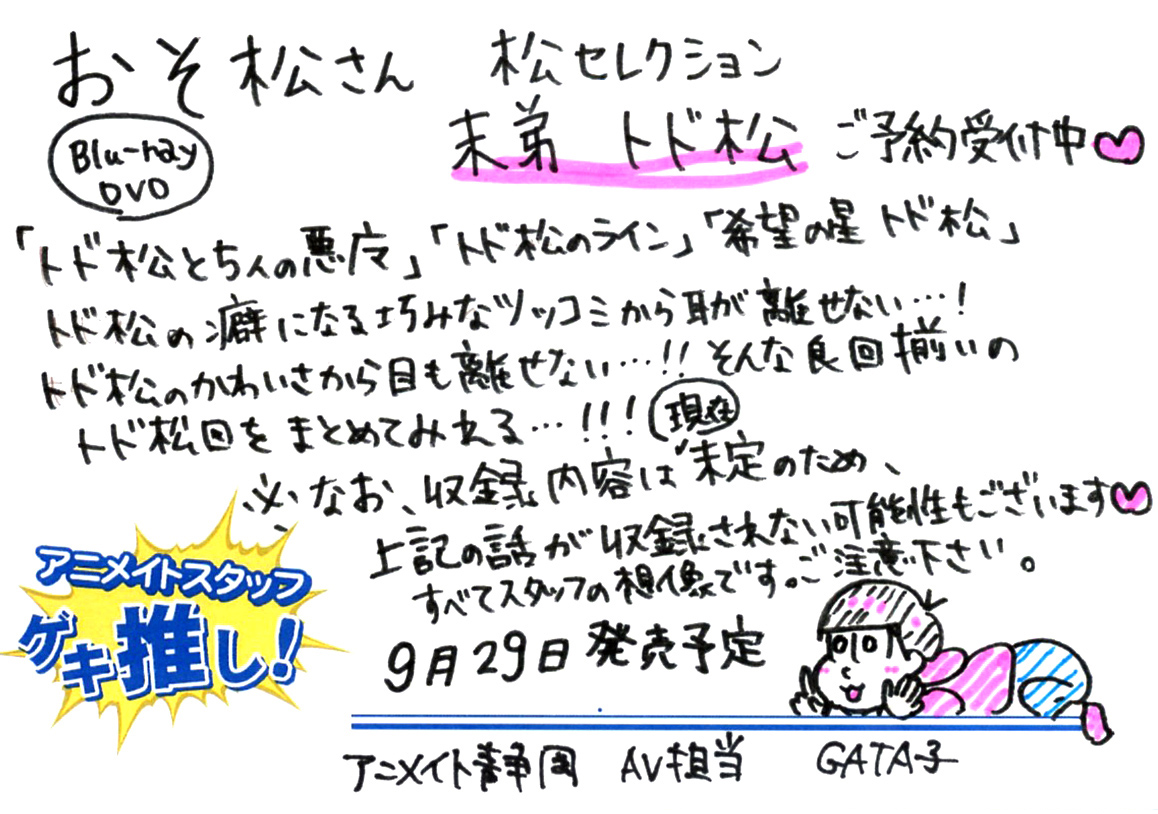 おそ松さん 松セレクション
Blu-ray
DVD
末弟 トド松 ご予約受付中
「トド松と5人の悪魔」「トド松のライン」「希望の星 トド松」
トド松の癖になる巧みなツッコミから耳が離せない…!
トド松のかわいさから目も離せない…!! そんな良回揃いの
トド松回をまとめてみれる…!!!
現在
※なお、収録内容は未定のため、
上記の話が収録されない可能性もございます
すべてスタッフの想像です。ご注意下さい。
9月29日発売予定
アニメイトスタッフ
ゲキ推し!
アニメイト静岡 AV担当 GATA子